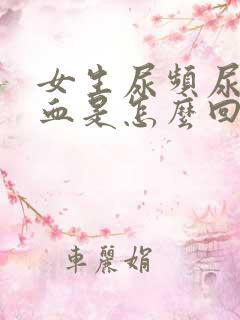 女生尿頻尿
血是怎麼回
車麗娟